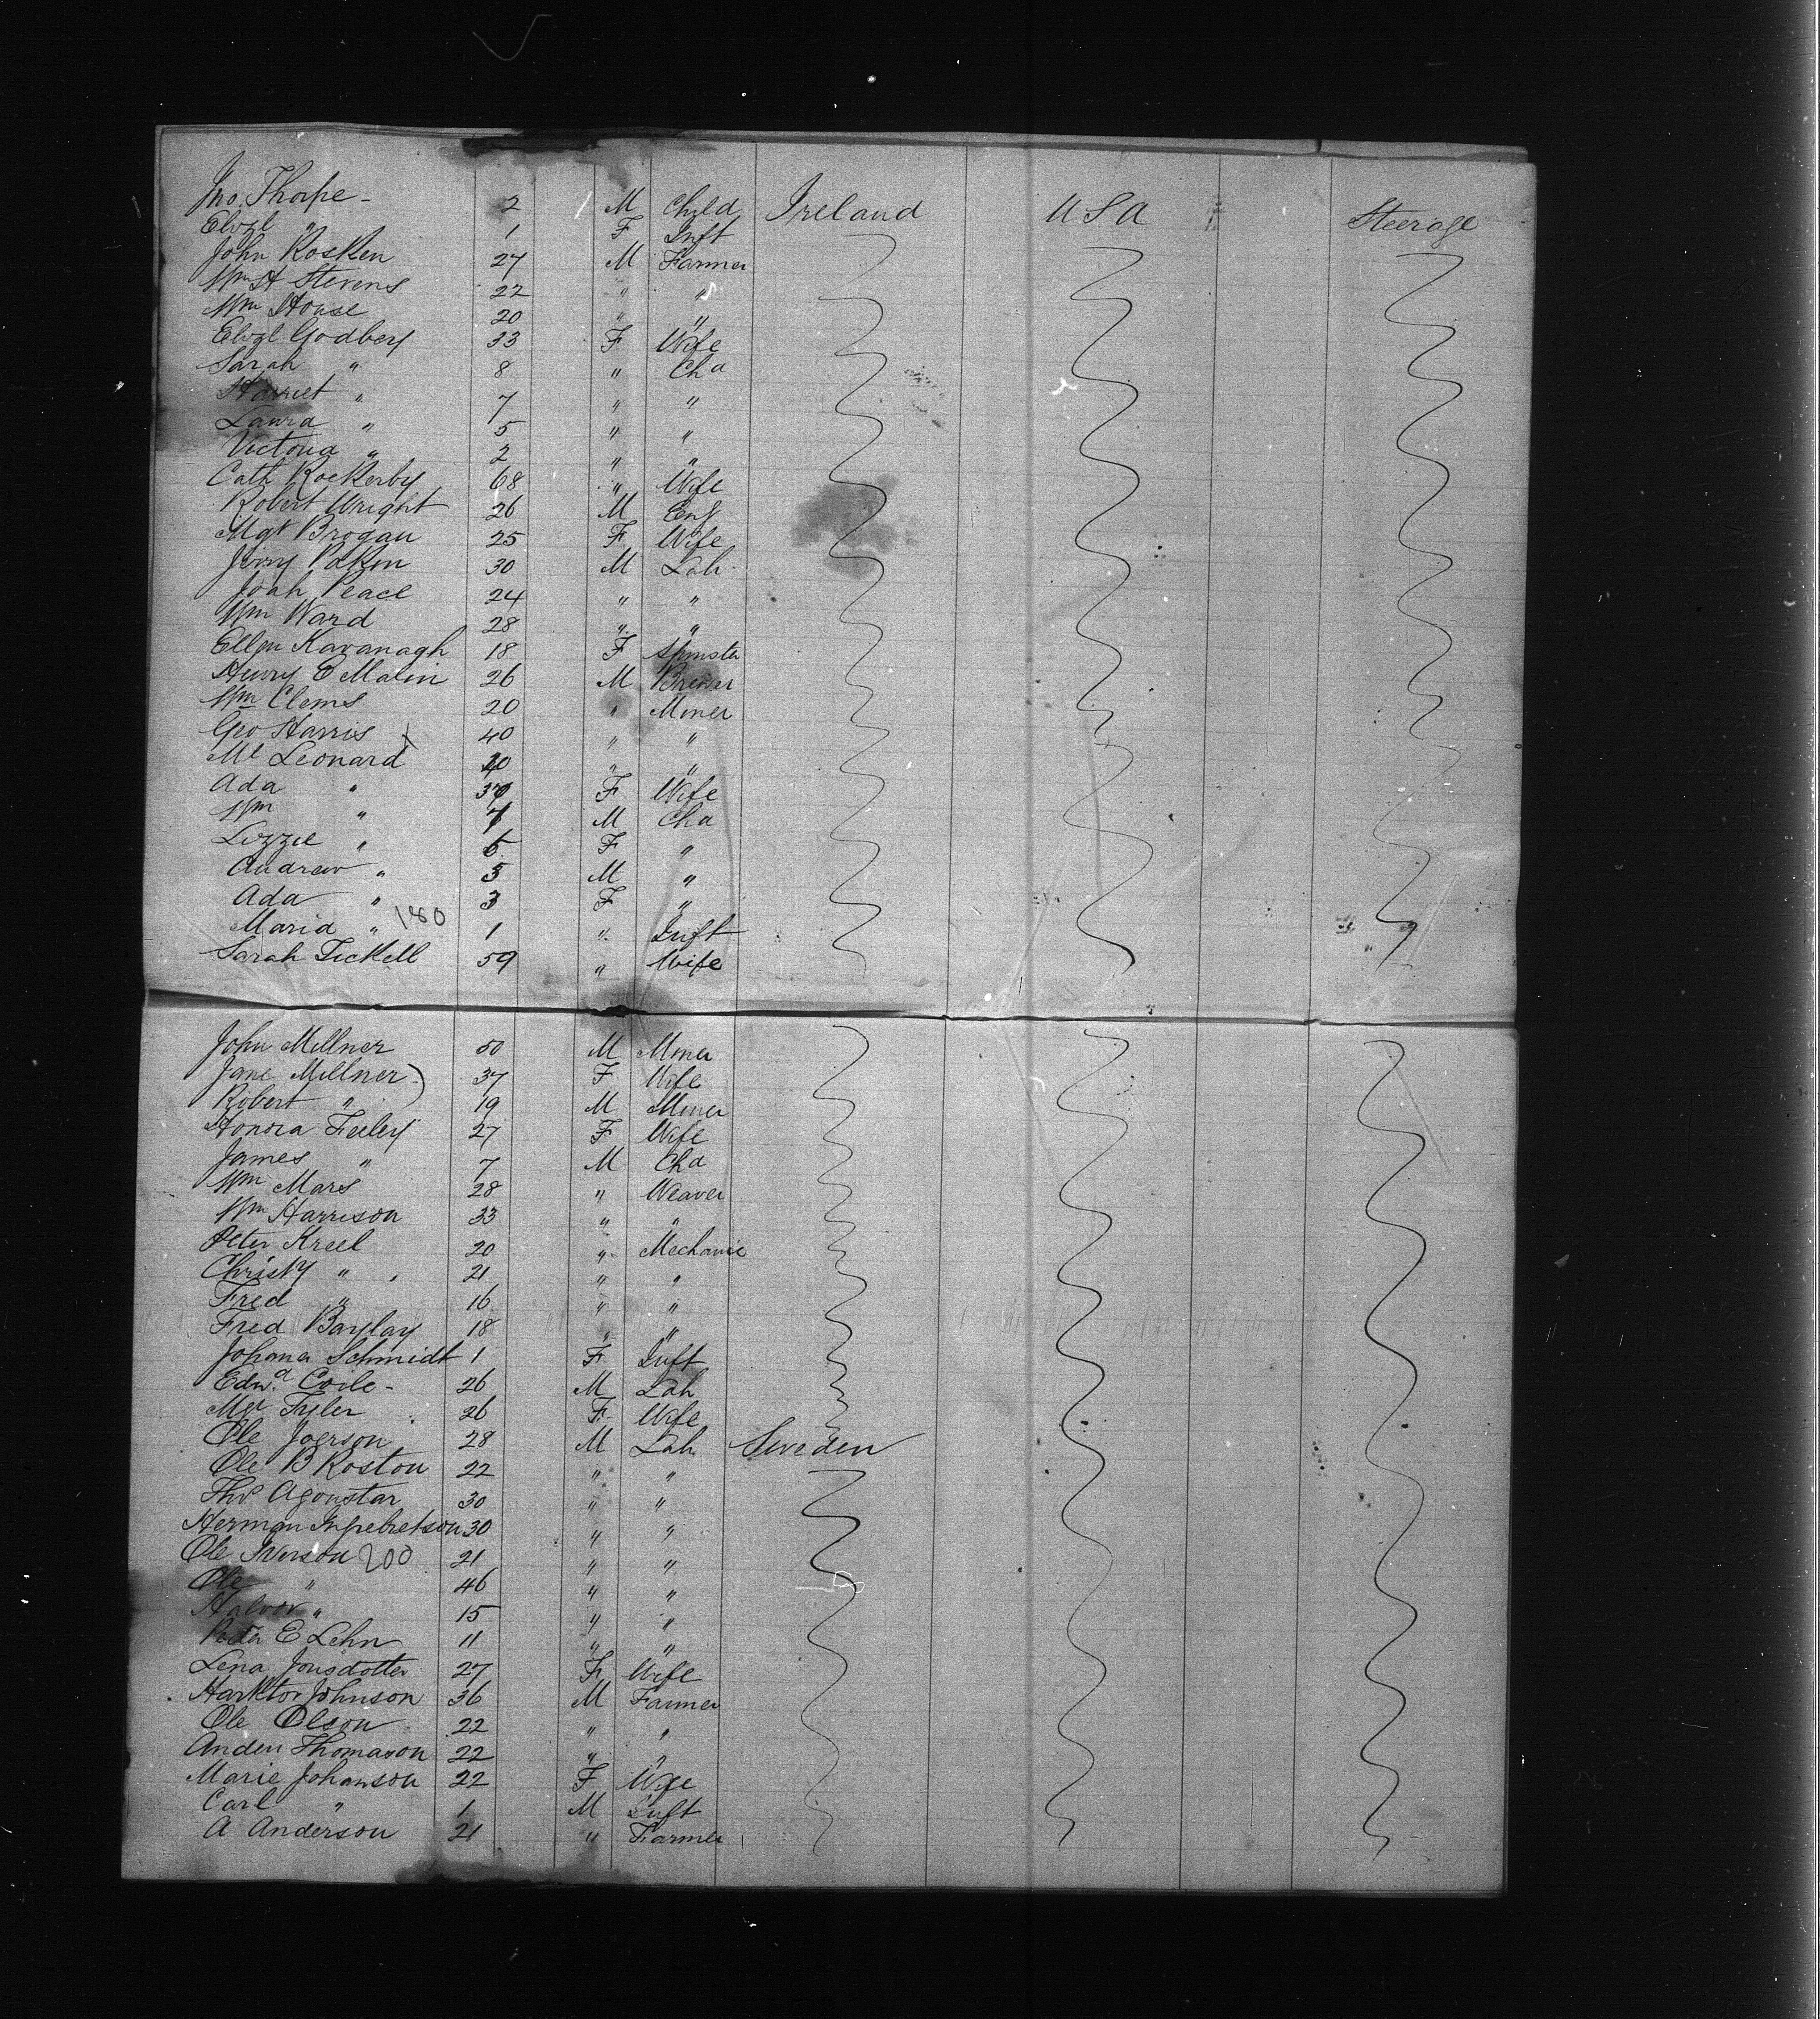 Jno. Thorpe - 2 M Child Ireland USA Steerage
Elizt " 1 F Inft
John Rosken 27 M Farmer
Wm H Stevens 22 " "
Wm House 20 " "
Elizt Godbey 33 F Wife
Sarah " 8 " Chd
Harriet " 7 " "
Laura " 5 " "
Victoria " 2 " "
Cath Rockerby 68 " Wife
Robert Wright 26 M Eng
Mgt Brogan 25 F Wife
Jerry 30 M Lab
Joah Peace 24 " "
Wm Ward 28 " "
Ellen Kavanagh 18 F Spinster
Henry E Malin 26 M Brewer
Wm Clems 20 " Miner
Geo Harris 40 " "
Ml Leonard 40 " "
Ada " F Wife
Wm " 7 M Chd
Lizzie " 6 F "
Andrew " 5 M "
Ada " 3 F "
Maria " 180 1 " Inft
Sarah Tickell 59 " Wife
John Millner 50 M Miner
Jane Millner 37 F Wife
Robert " 19 M Miner
Honora Feeley 27 F Wife
James " 7 M Chd
Wm Mars 28 " Weaver
Wm Harrison 33 " "
Peter Kreel 20 " Mechanic
Christy " 21 " "
Fred " 16 " "
Fred Baylay 18 " "
Johana Schmidt 1 F Inft
Edwd Coile - 26 M Lab
Mgt Tyler 26 F Wife
Ole Joerson 28 M Lab Sweden
Ole B Roston 22 " "
Thos Agonstar 30 " "
Herman 30 " "
Ole Iverson 200 21 " "
Ole " 46 " "
Halvor " 15 " "
Peter E Lehn 11 " "
Lena Jonsdotter 27 F Wife
Johnson 36 M Farmer
Ole Olson 22 " "
Anden Thomason 22 " "
Marie Johanson 22 F Wife
Carl " 1 M Inft
A Anderson 21 " Farmer